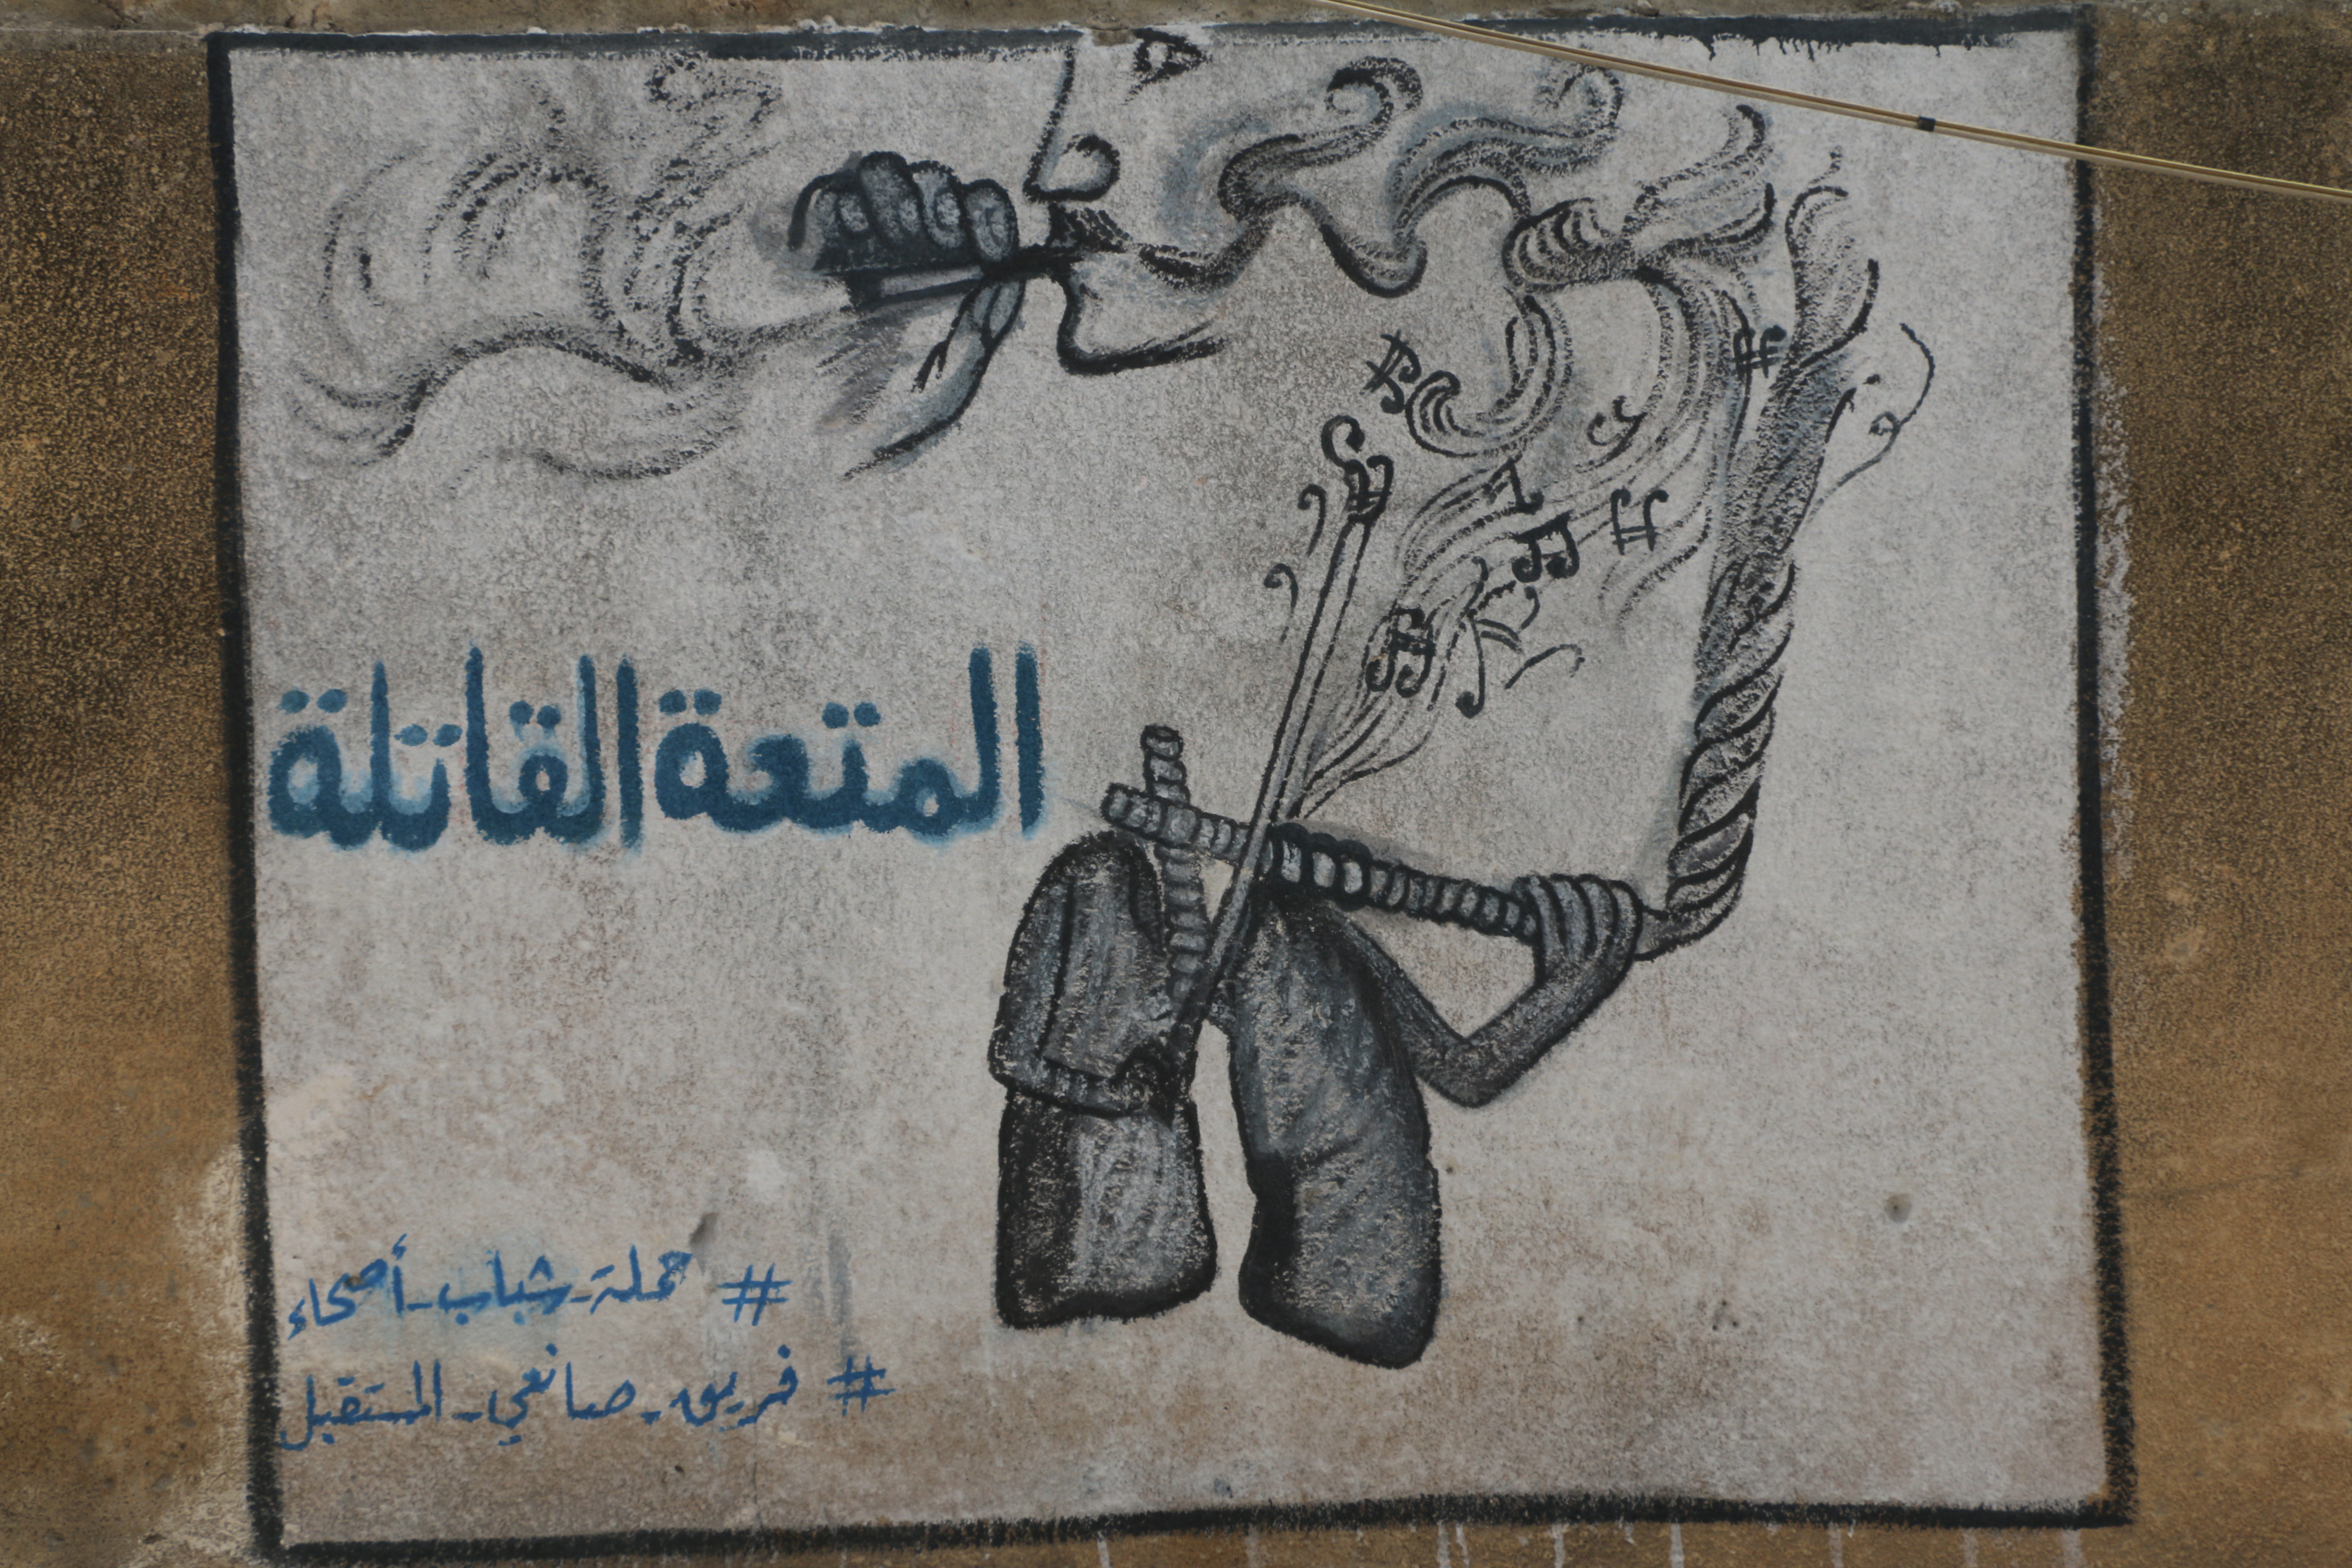 المتعة القاتلة
# حملة_شباب_أصحاء
# فريق_صانعي_المستقبل